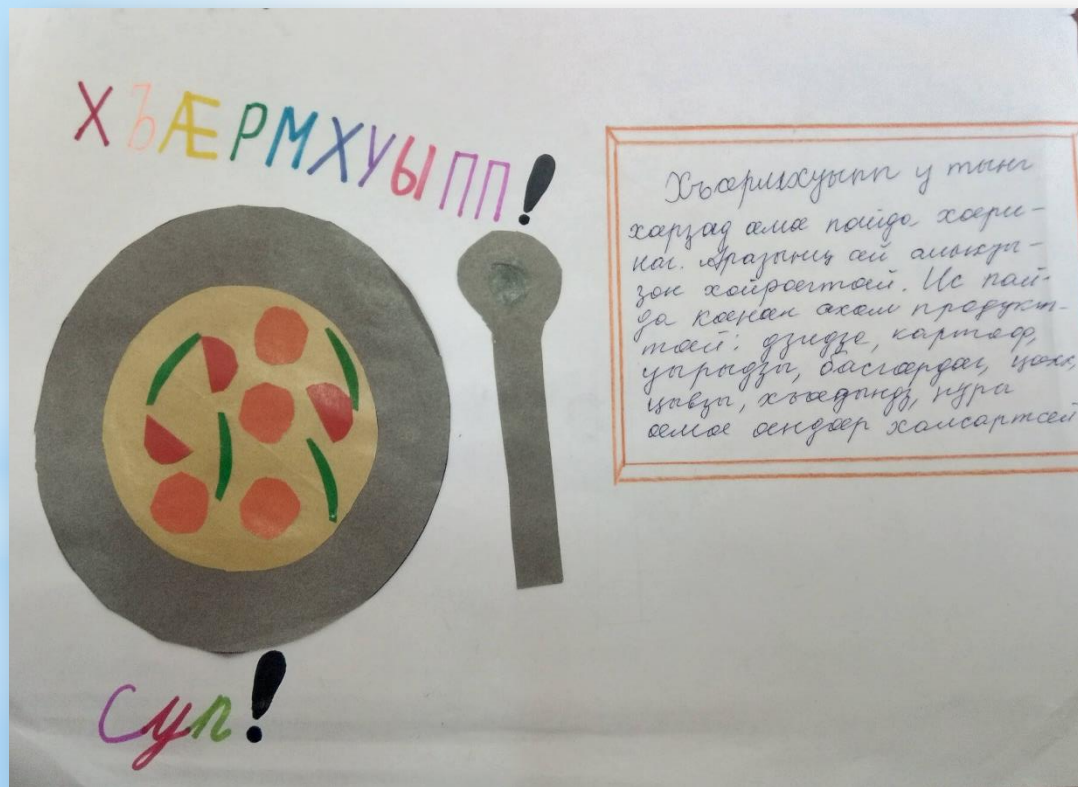 ХЪÆРМХУЫПП!
Хъæрмхуыпп у тынг
хæрзад æмæ пайда хæри-
наг. Аразынц æй алыхуы-
зон хойрагтæй. Ис пай-
да кæнæн ахæм продукт-
тæй: дзидза, картоф,
уырыдзы, басгæрдæг, цæхæ,
цывзы, хъæдындз, нури
æмæ æндæр халсартæй
Суп!